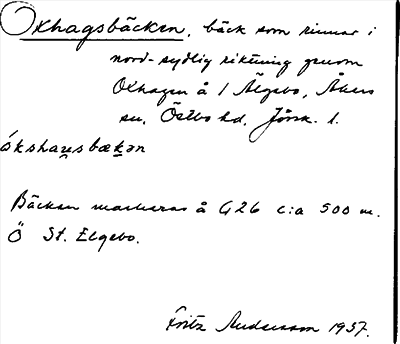 Oxhagsbäcken, bäck som rinner i
nord-sydlig riktning genom
Oxhagen å 1 Älgebo, Åkers
sn. Östbo hd. Jönk. l.
ókshaɡsbäkən
Bäcken markeras å G26 c:a 500 m.
Ö St. Elgebo.
Fritz Andersson 1937.